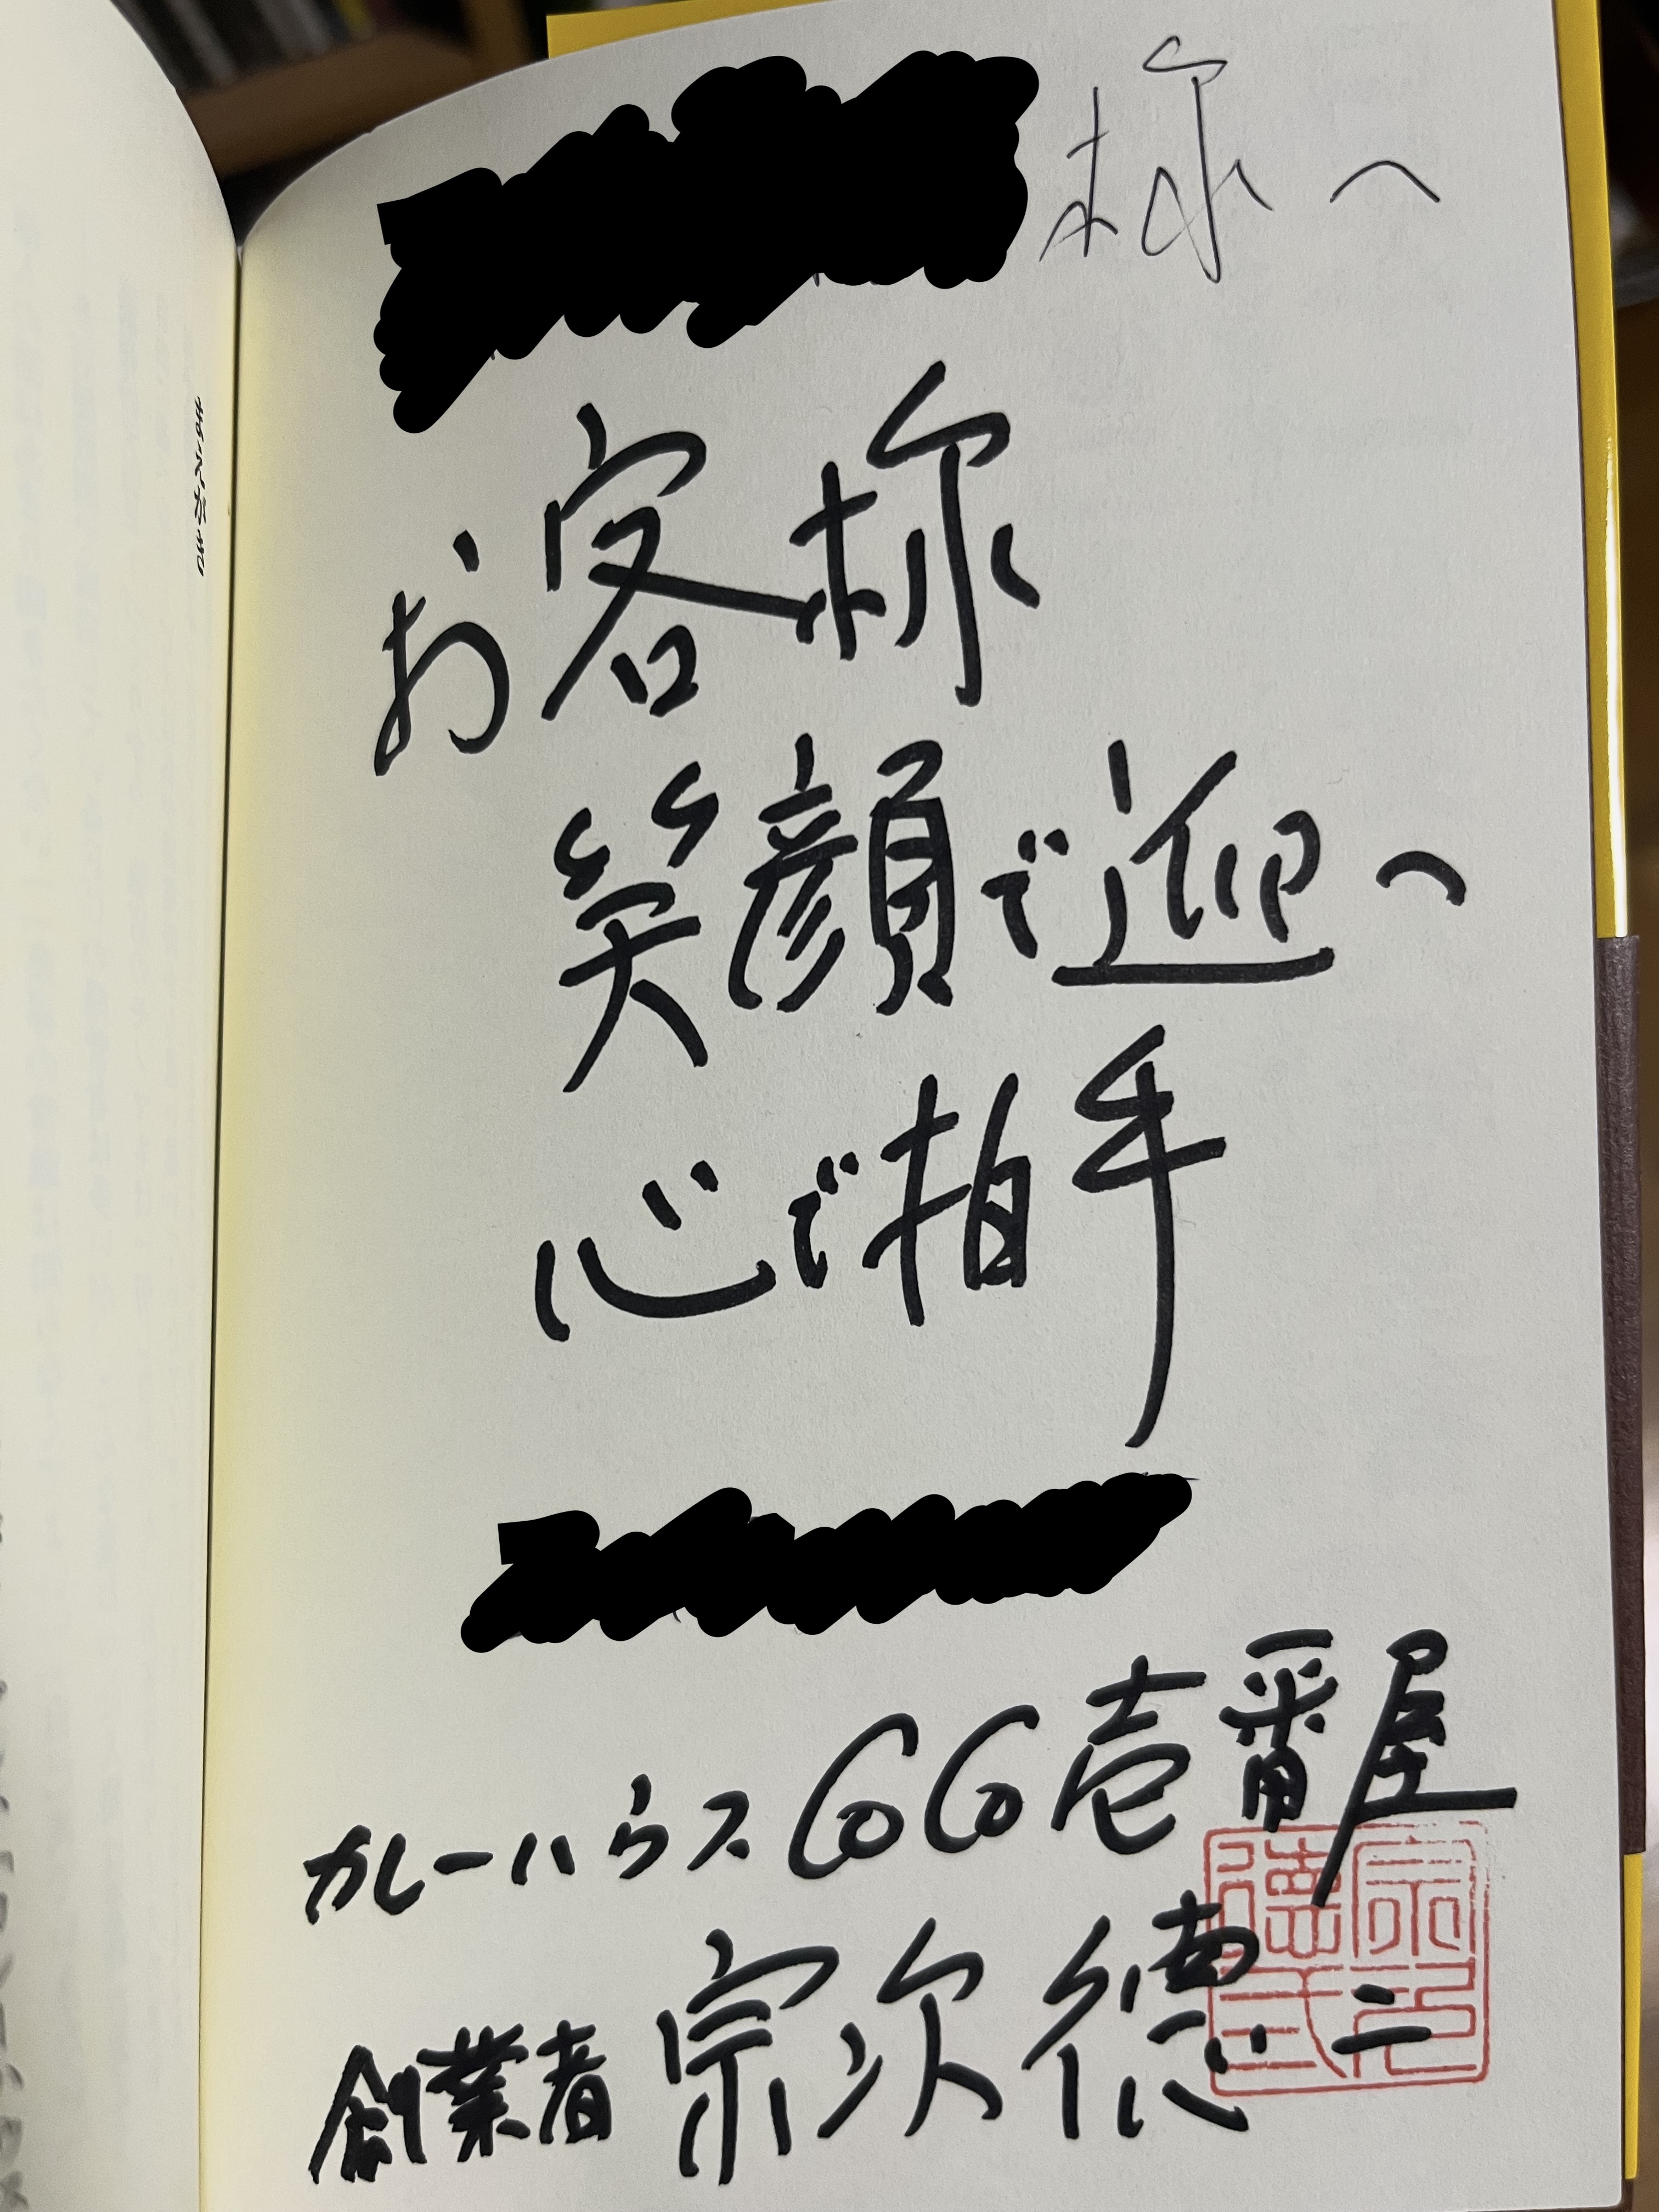 様へ
お客様
笑顔で迎へ
心で拍手
カレーハウスCoCo壱番屋
創業者 宗次徳二